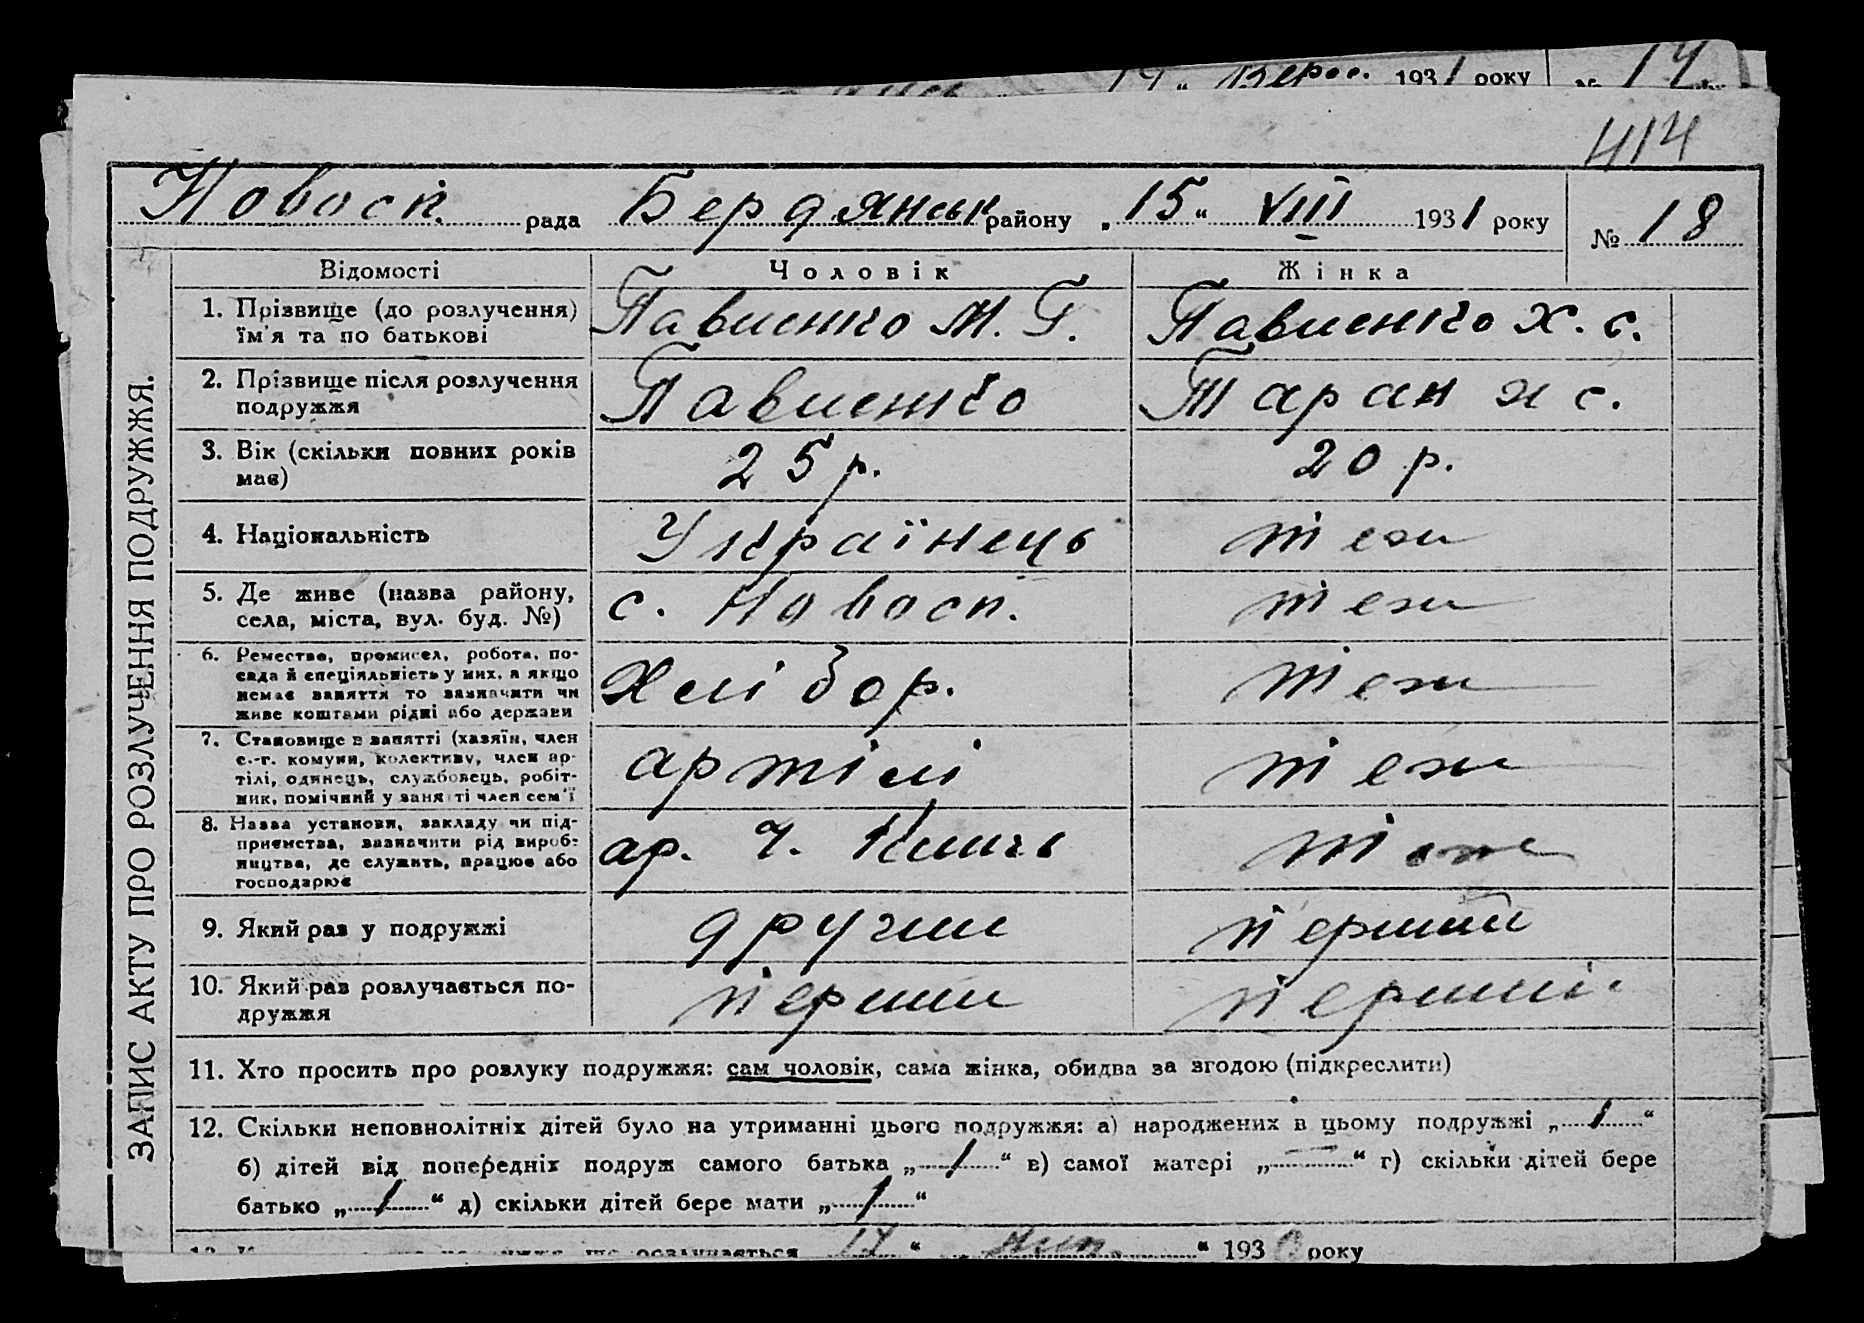 14 " Верес. 1931 року № 14
414
Новосп. рада Бердянськ району „ 15 " VIII 1931 року № 18
ЗАПИС АКТУ ПРО РОЗЛУЧЕННЯ ПОДРУЖЖЯ.
Відомості Чоловік Жінка
1. Прізвище (до розлучення) їм'я та по батькові Павленко М. Г. Павленко Х. С.
2. Прізвище після розлучення подружжя Павленко Таран Х С.
3. Вік (скільки повних років має) 25 р. 20 р.
4. Національність Українець теж
5. Де живе (назва району, села, міста, вул. буд. №) с. Новосп. теж
6. Ремество, промисел, робота, посада й спеціяльність у них, а якщо немає заняття то зазначити чи живе коштами рідні або держави Хлібор. теж
7. Становище в занятті (хазяїн, член с.-г. комуни, колективу, член артілі, одинець, службовець, робітник, помічний у занятті член сем'ї артілі теж
8. Назва установи, закладу чи підприємства, зазначити рід виробництва, де служить, працює або господарює ар. теж
9. Який раз у подружжі други перший
10. Який раз розлучається подружжя перши перший
11. Хто просить про розлуку подружжя: сам чоловік, сама жінка, обидва за згодою (підкреслити)
12. Скільки неповнолітніх дітей було на утриманні цього подружжя: а) народжених в цьому подружжі „ 1 "
б) дітей від попередніх подруж самого батька „ 1 " в) самої матері „ — " г) скільки дітей бере
батько „ 1 " д) скільки дітей бере мати „ 1 "
17 " 1930 року